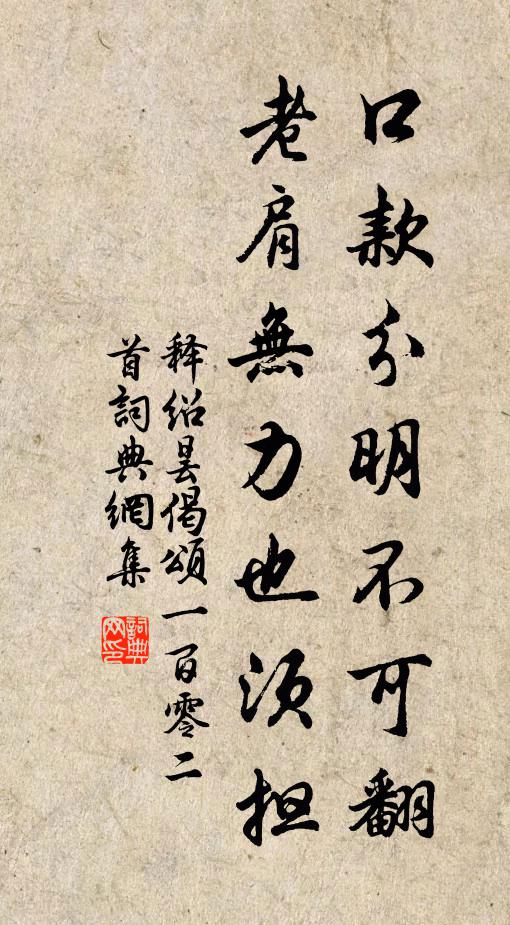 口款分明不可翻
老肩無力也須担
释绍昙偈頌一百零二
首詞典網集
詞典网印